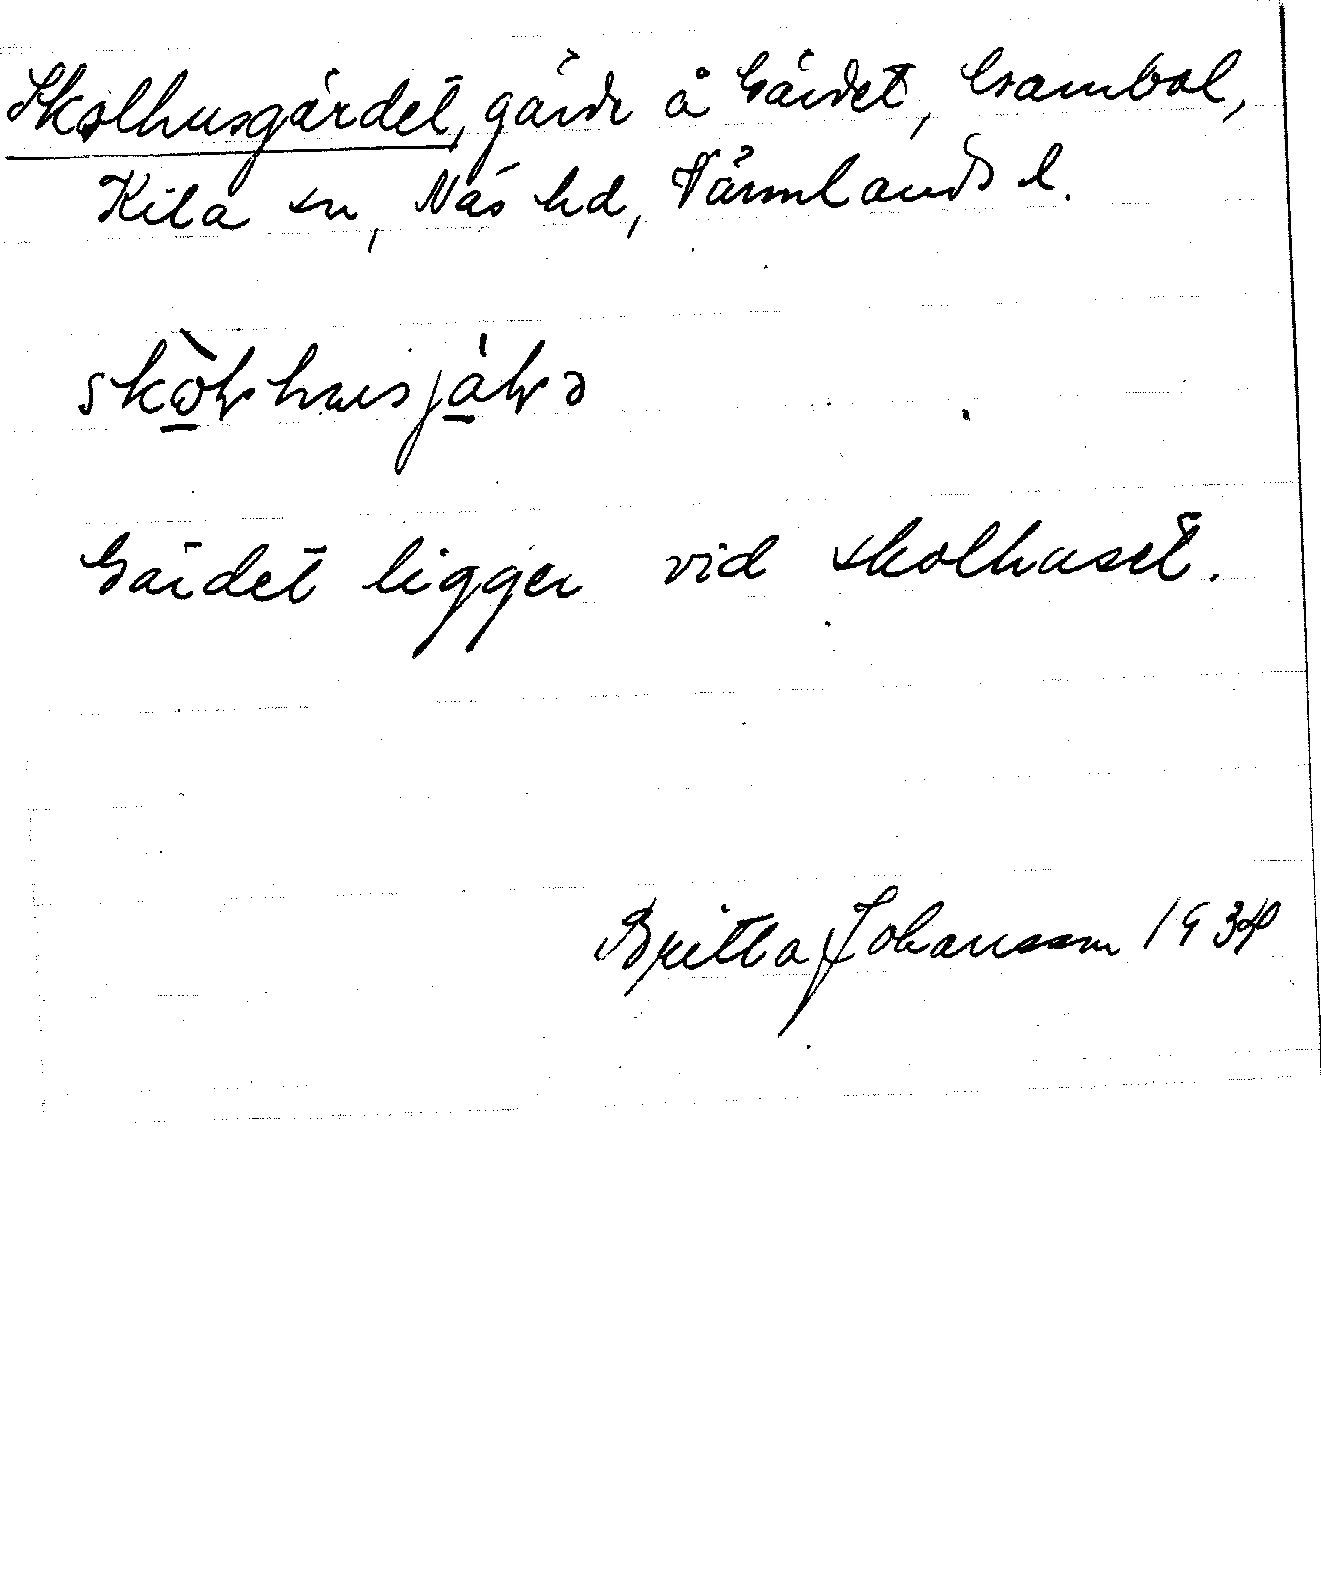 Skolhusgärdet, gärde å Gärdet, Grambol,
Kila sn, Näs hd, Värmlands l.
Gärdet ligger vid skolhuset.
Britta Johansson 1934